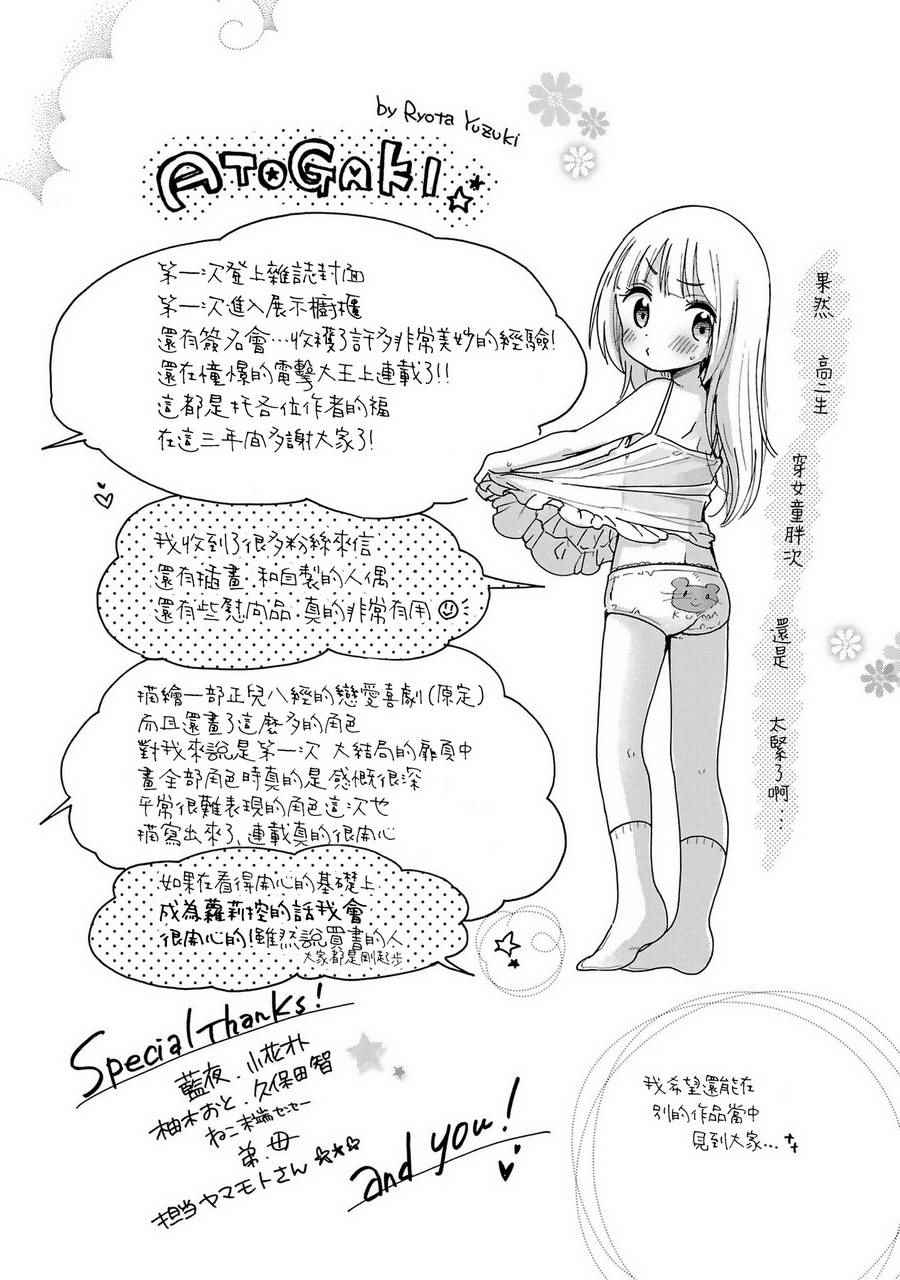 by Ryota Yuzuki
ATOGAKI
第一次登上雜誌封面
第一次進入展示櫥櫃
還有簽名會…收穫了許多非常美妙的經驗!
還在憧憬的電擊大王上連載了!!
這都是托各位作者的福
在這三年間多謝大家了!
我收到了很多粉絲來信
還有插畫.和自製的人偶
還有些慰问品.真的非常有用
描繪一部正兒八經的戀愛喜劇(原定)
而且還畫了這麼多的角色
對我來說是第一次 大結局的扉頁中
畫全部角色時真的是感慨很深
平常很難表現的角色這次也
描寫出來了,連載真的很開心
如果在看得開心的基礎上
成為蘿莉控的話我會
很開心的!雖然說買書的人
大家都是剛起步
果然
高二生
穿女童胖次
還是
太緊了啊...
Special Thanks!
藍夜.小花朴
柚木おと.久保田智
ねこ末端せせー
弟.母
担当ヤマモトさん
and you!
我希望還能在
別的作品當中
見到大家...